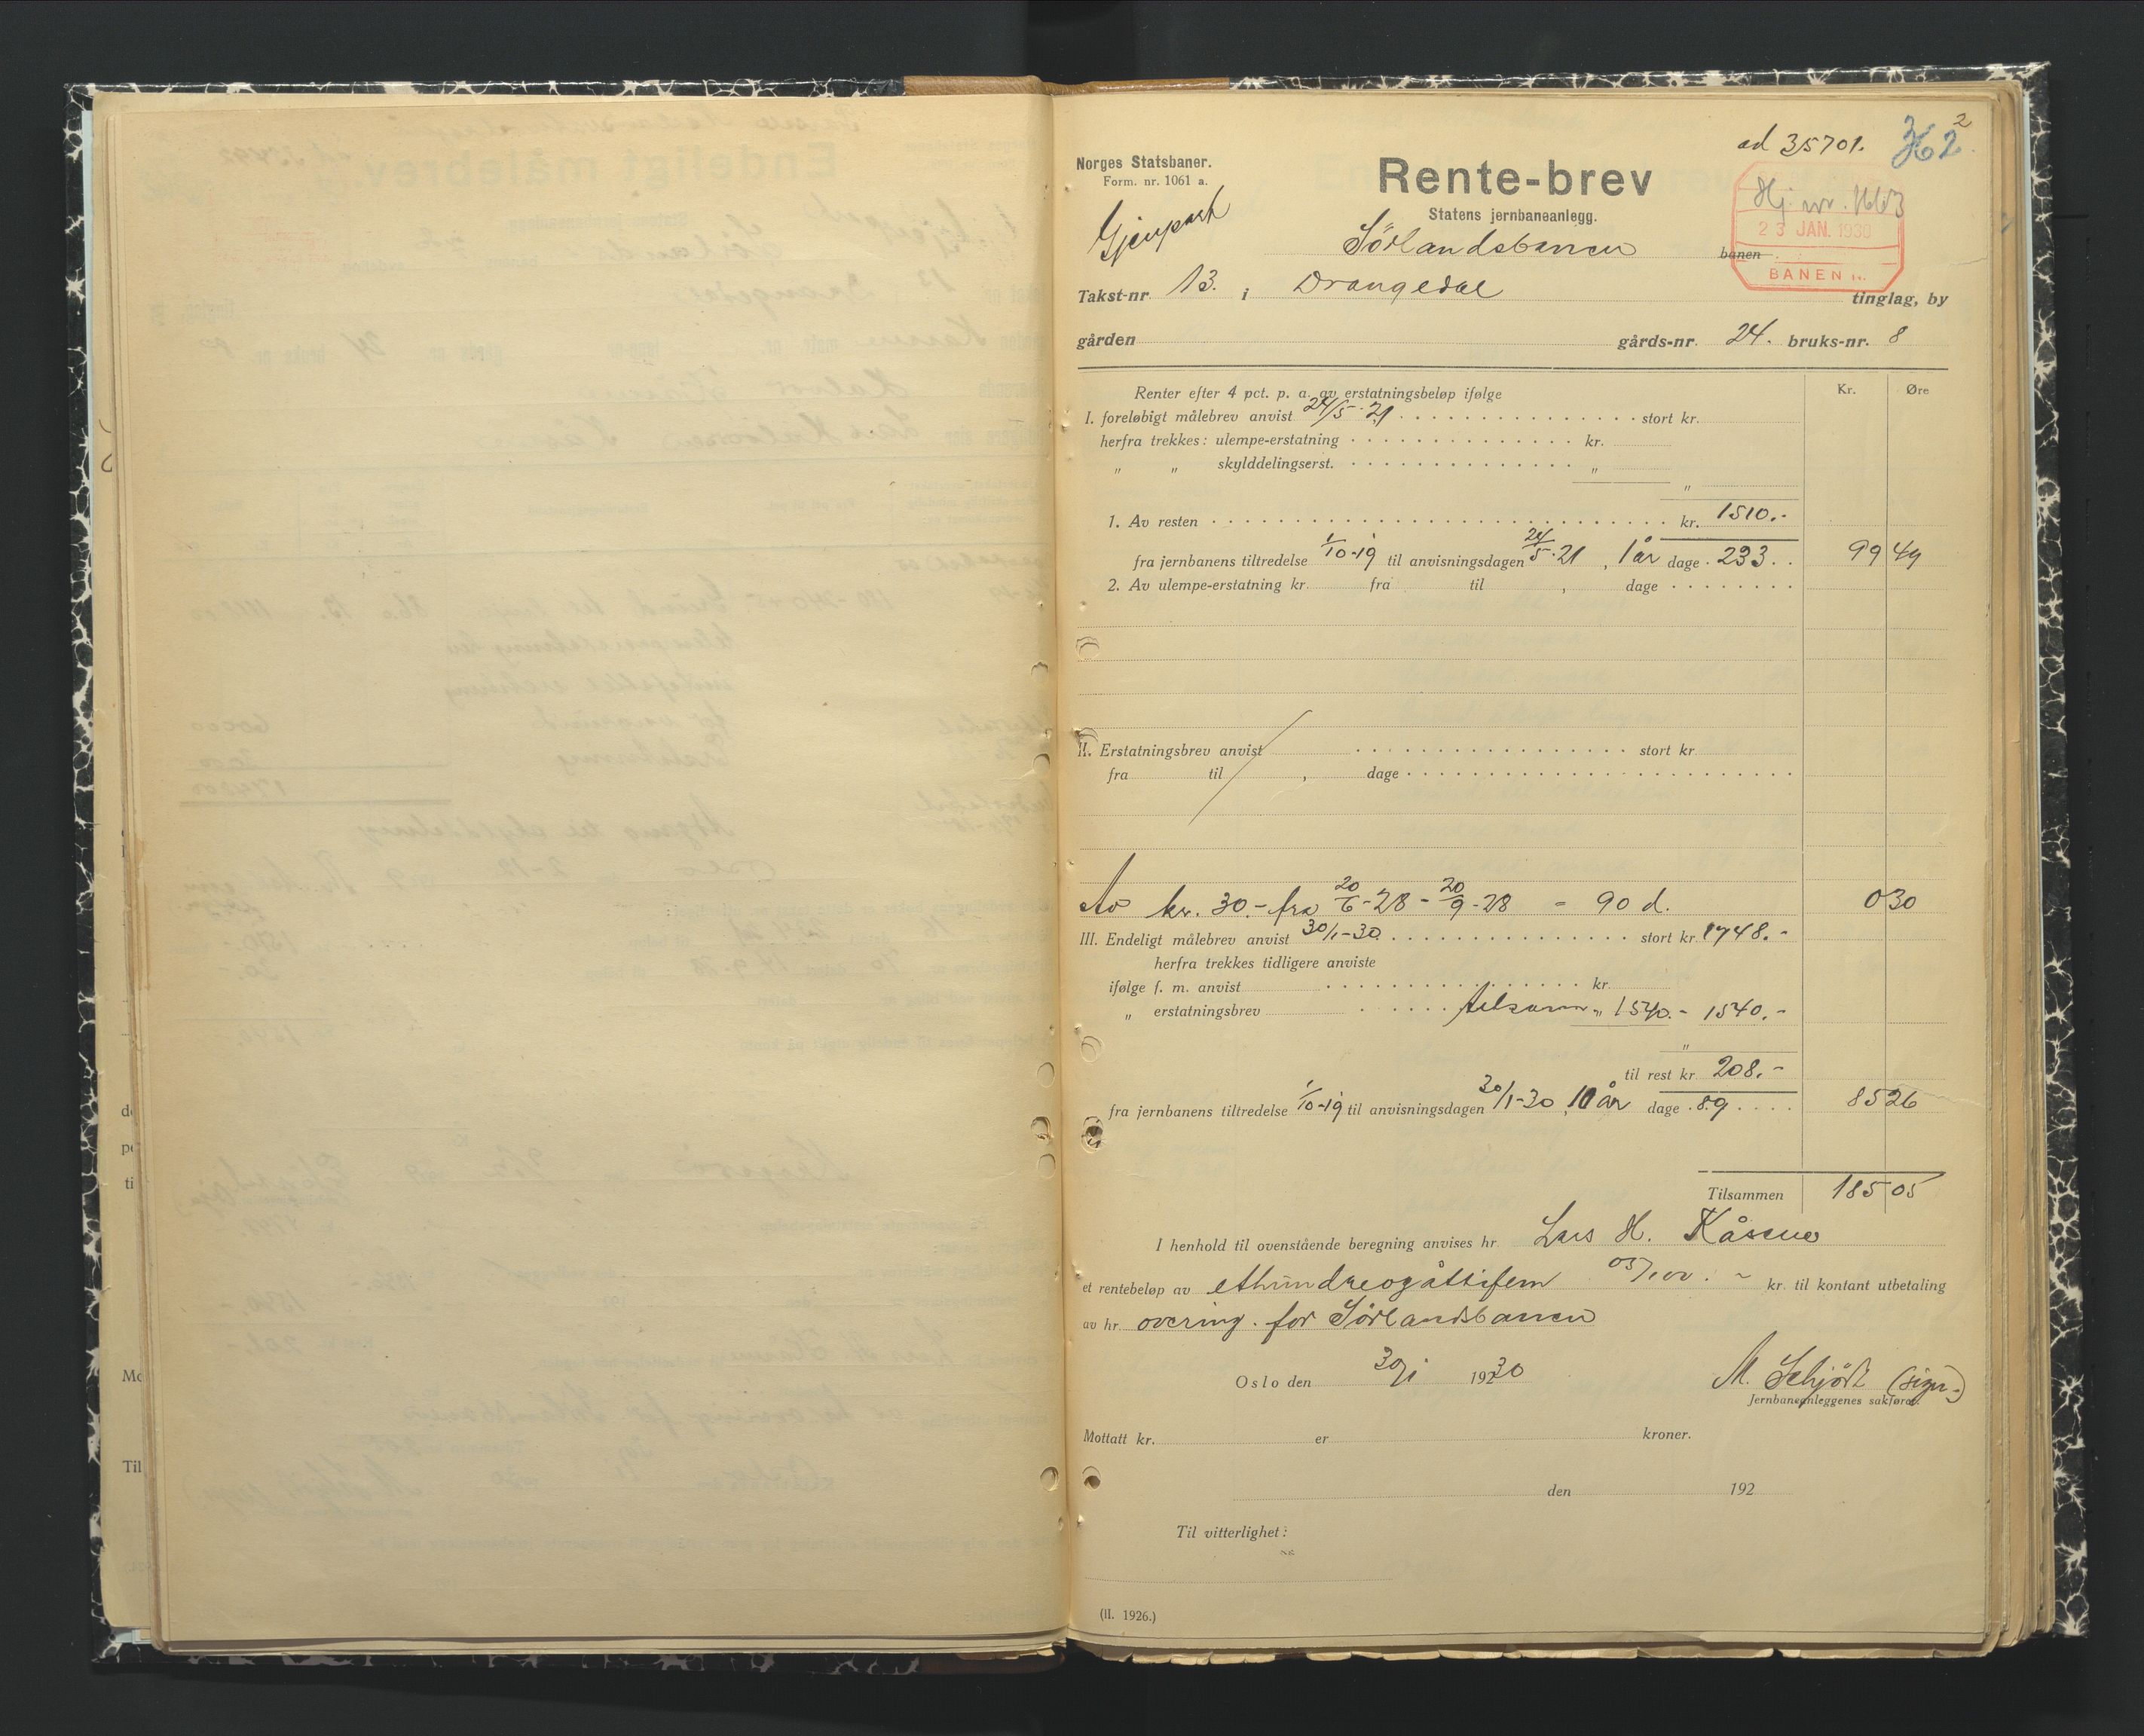 ad 35701. 362 2
Norges Statsbaner.
Form. nr. 1061 a.
Rente-brev
Statens jernbaneanlegg.
Gjenpart
Hj. nr. 1663
23 JAN. 1930
BANEN
Sörlandsbanen banen
Takst-nr. 13. i Drangedal tinglag, by
gården gårds-nr. 24. bruks-nr. 8
Renter efter 4 pct. p. a. av erstatningsbeløp ifølge Kr. Øre
I. foreløbigt målebrev anvist 24/5-21 stort kr.
herfra trekkes: ulempe-erstatning kr.
„ „ skylddelingserst. „
„
1. Av resten kr. 1510.-
fra jernbanens tiltredelse 1/10-19 til anvisningsdagen 24/5-21, 1 år dage 233 99 49
2. Av ulempe-erstatning kr. fra til , dage
II. Erstatningsbrev anvist stort kr.
fra til , dage
Av kr. 30.- fra 20/6-28 - 20/9-28 = 90 d. 0 30
III. Endeligt målebrev anvist 30/1-30 stort kr. 1748.-
herfra trekkes tidligere anviste
ifølge f. m. anvist kr.
„ erstatningsbrev tilsamm. „ 1540.- 1540.-
„
til rest kr. 208.-
fra jernbanens tiltredelse 1/10-19 til anvisningsdagen 30/1-30, 10 år dage 89 85 26
Tilsammen 185 05
I henhold til ovenstående beregning anvises hr. Lars H. Kåsene
et rentebeløp av ethundreogåttifem 05/100 - kr. til kontant utbetaling
av hr. overing. for Sörlandsbanen
Oslo den 30/1 1930
M. Schjödt (sign.)
Jernbaneanleggenes sakfører.
Mottatt kr. er kroner.
den 192
Til vitterlighet:
(II. 1926.)